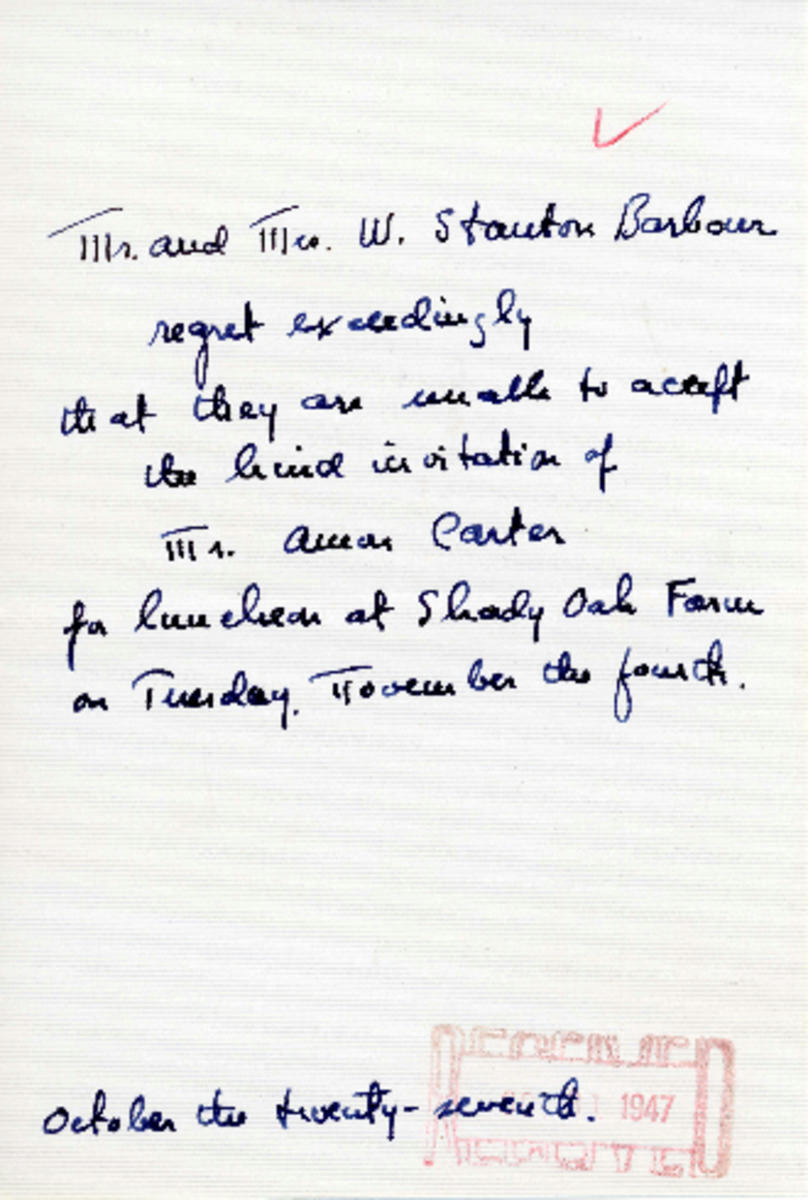 Mr. and Mrs. W. Stanton Barbour
regret exceedingly
that they are unable to accept
the kind invitation of
Mr. Amon Carter
for luncheon at Shady Oak Farm
on Tuesday, November the fourth.
October the twenty-seventh.
1947